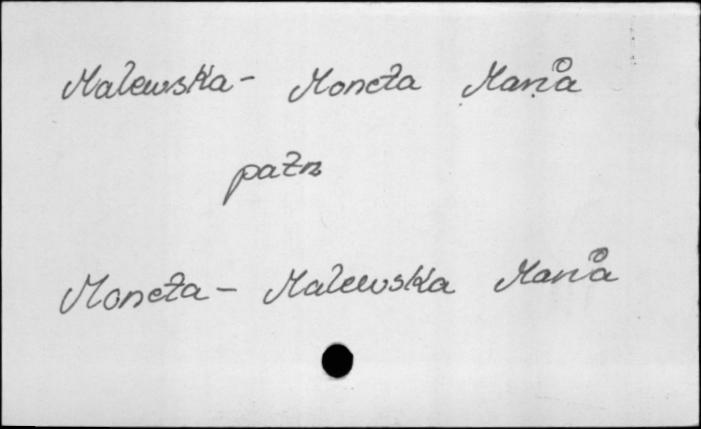 Malewska - Moneta Maria
patrz
Moneta - Malewska Maria